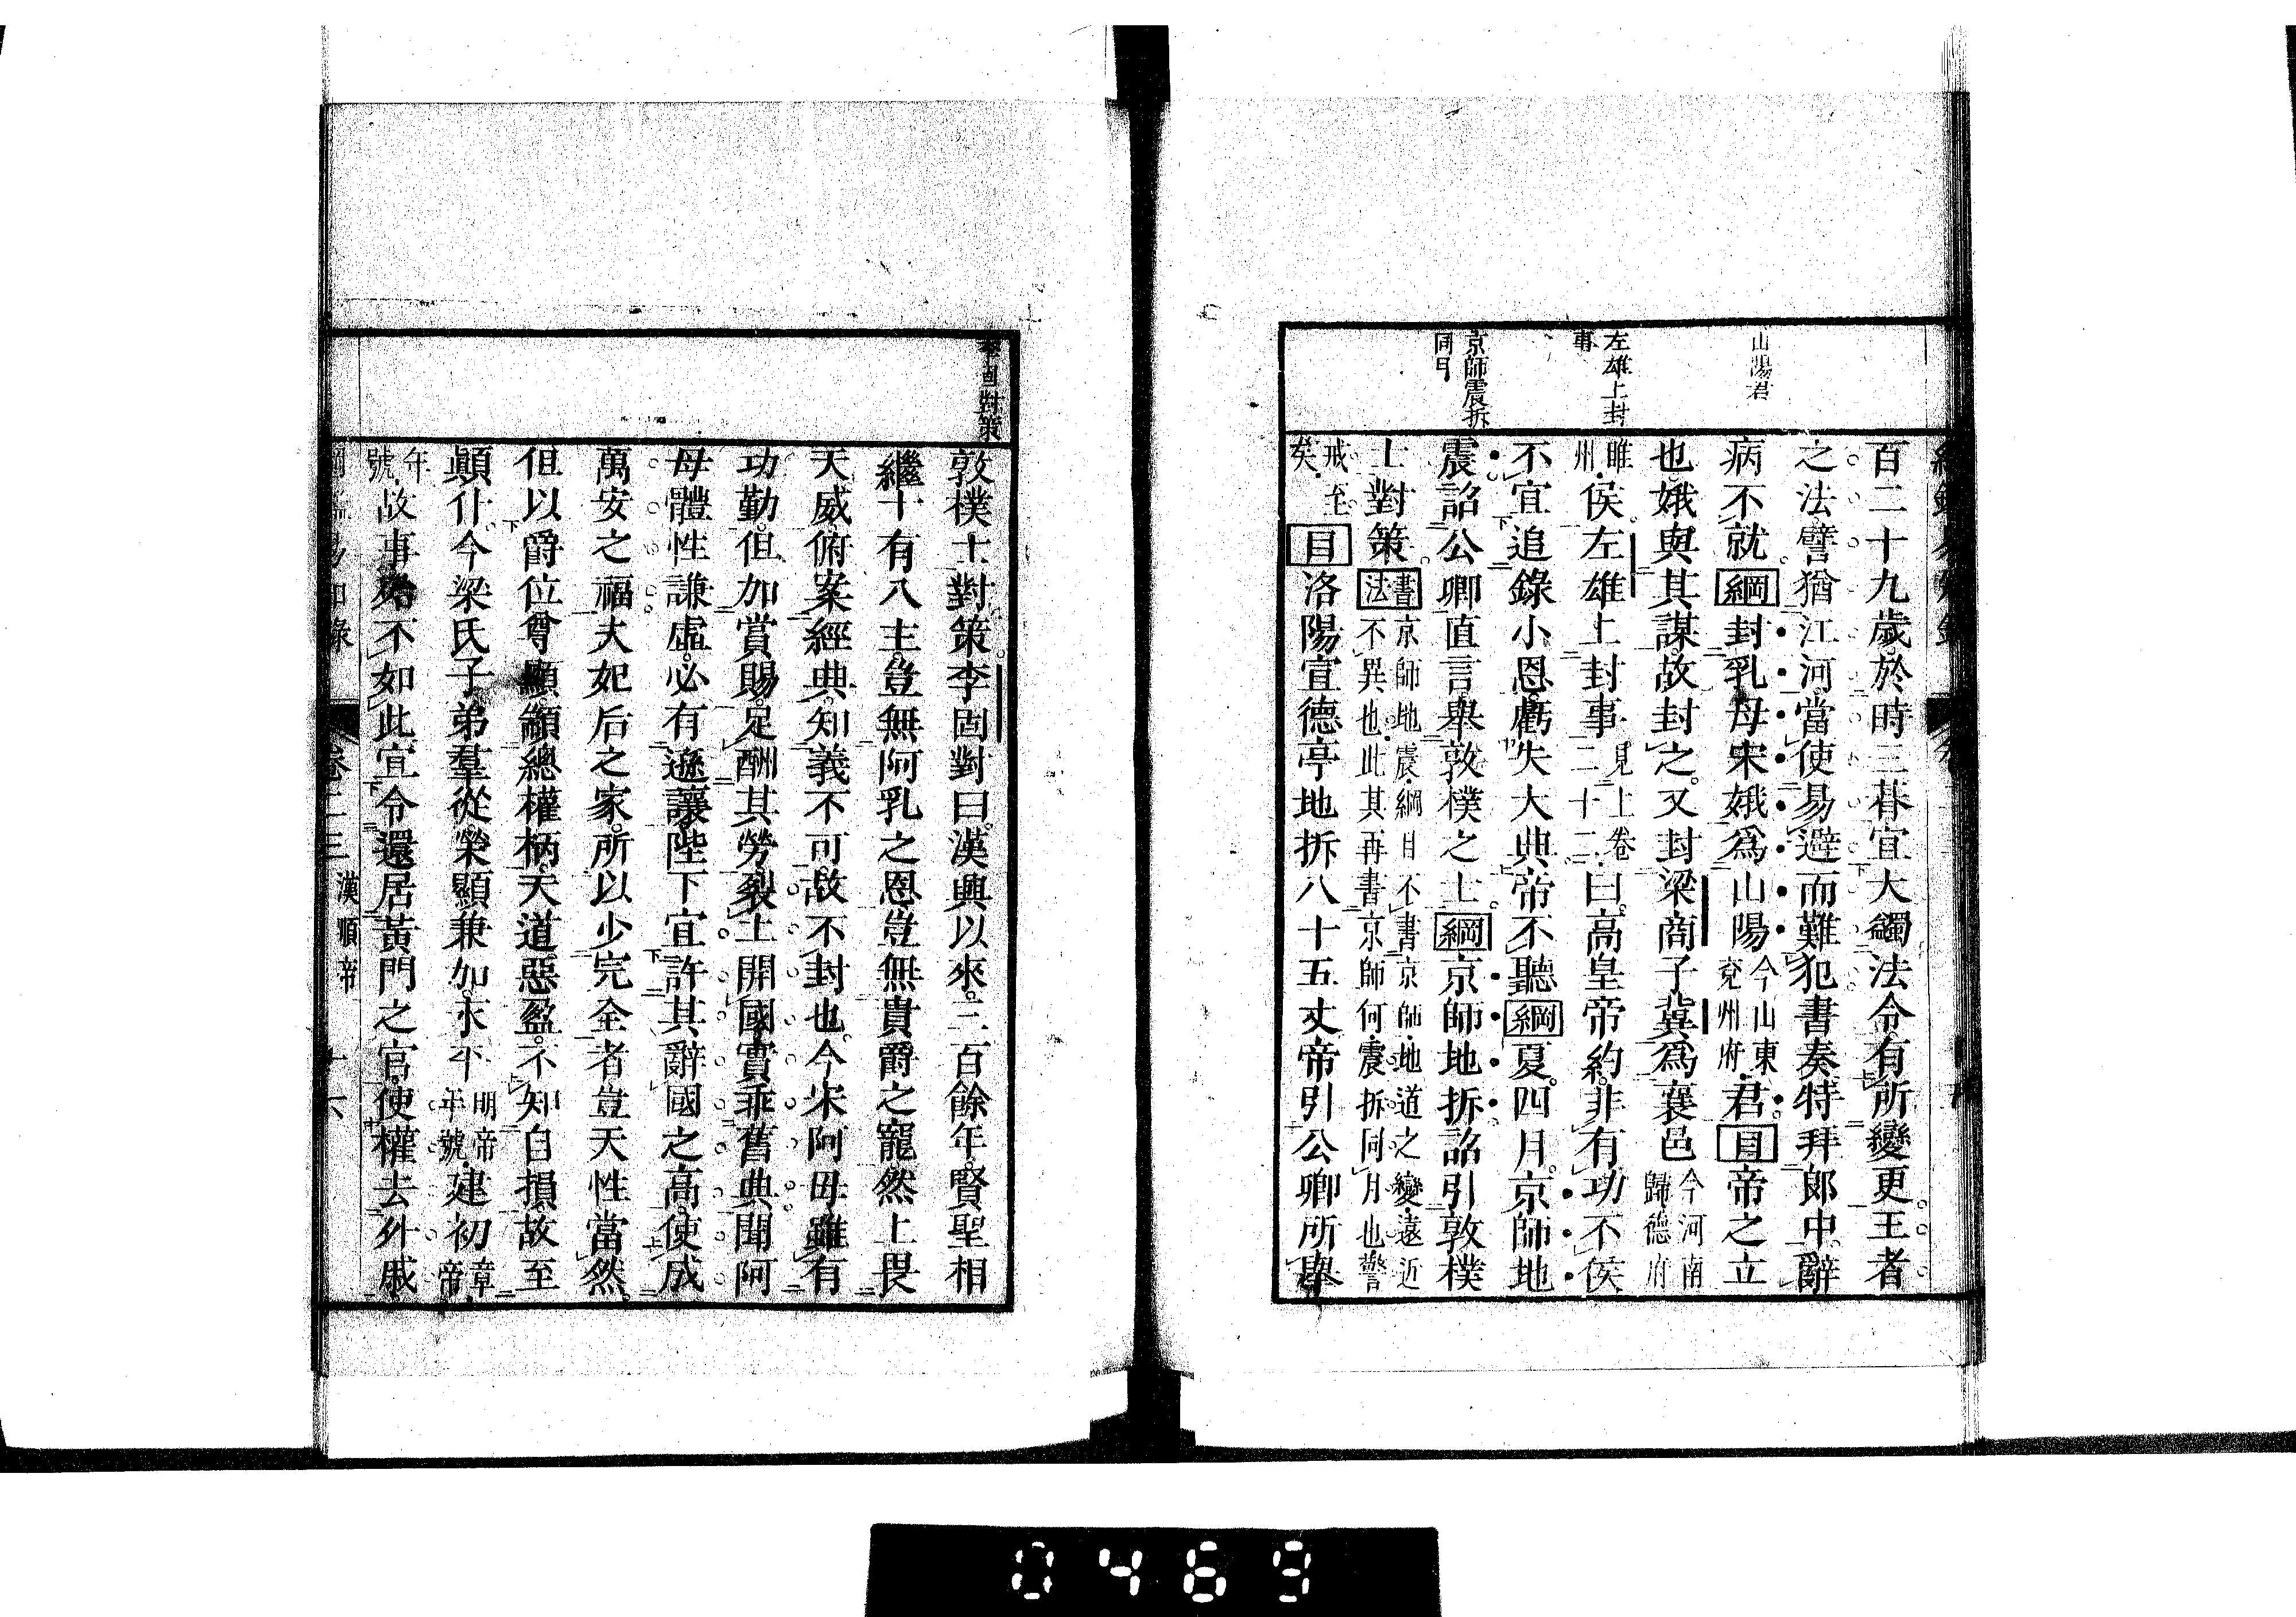 山陽君
左雄上封
事
京師震拆
同月
百二十九歲於時三朞宜大蠲法令有所變更王者
之法譬猶江河當使易避而難犯書奏特拜郎中辭
病不就綱封乳母宋娥爲山陽今山東兗州府君目帝之立
也娥與其謀故封之又封梁商子冀爲襄邑今河南歸德府
睢州侯左雄上封事見上卷二十二曰高皇帝約非有功不侯
不宜追錄小恩虧失大典帝不聽綱夏四月京師地
震詔公卿直言舉敦樸之士綱京師地拆詔引敦樸
士對策書法京師地震綱目不書京師地道之變遠近不異也此其再書京師何震拆同月也警
戒至矣目洛陽宣德亭地拆八十五丈帝引公卿所舉
李固對策
敦樸士對策李固對曰漢興以來三百餘年賢聖相
繼十有八主豈無阿乳之恩豈無貴爵之寵然上畏
天威俯案經典知義不可故不封也今宋阿母雖有
功勤但加賞賜足酬其勞裂土開國實乖舊典聞阿
母體性謙虛必有遜讓陛下宜許其辭國之高使成
萬安之福夫妃后之家所以少完全者豈天性當然
但以爵位尊顯顓總權柄天道惡盈不知自損故至
顚仆今梁氏子弟羣從榮顯兼加永平明帝年號建初章帝
年號故事殆不如此宜令還居黃門之官使權去外戚
綱鑑易知錄 卷二三 漢順帝 十六
0469